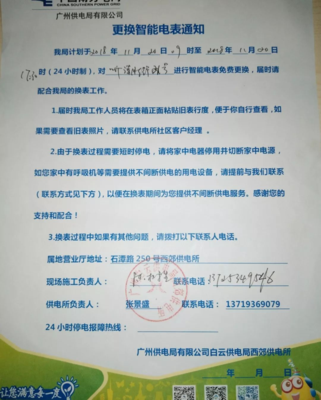 中国南方电网
CHINA SOUTHERN POWER GRID
广州供电局有限公司
更换智能电表通知
我局计划于2018年11月20日09时至2018年11月20日
(24小时制)，对 进行智能电表免费更换，届时请
配合我局的换表工作。
1.届时我局工作人员将在表箱正面粘贴旧表行度，便于你自行查看，如
果需要查看旧表照片，请联系供电所社区客户经理。
2.由于换表过程需要短时停电，请将家中电器停用并切断家中电源，
如您家中有呼吸机等需要提供不间断供电的用电设备，请提前与我们联系
(联系方式见下方)，以便在换表期间为您提供不间断供电服务。感谢您的
支持和配合！
3.换表过程中如果有其他问题，请拨打以下联系人电话。
属地营业厅地址：石潭路250号西郊供电所
现场施工负责人： 联系电话：
供电所负责人： 张景盛 联系电话：13719369079
24小时停电报障热线：
广州供电局有限公司白云供电局西郊供电所
年 月 日
让您满意每一度